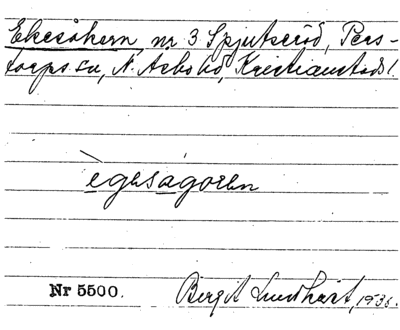 Ekesåkern, nr 3 Spjutseröd, Pers-
torps sn, N. Åsbo hd, Kristianstads l.
ègesågoren
Nr 5500.
Bergit Lundhart, 1936.